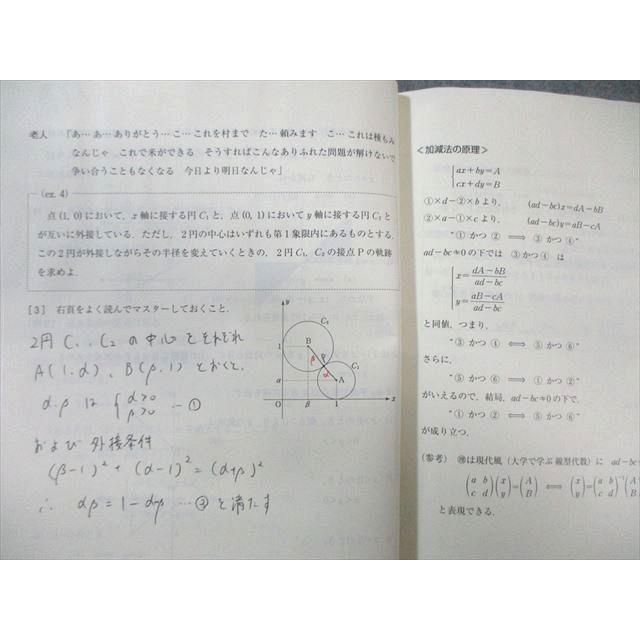 老人 「あ… あ… ありがとう… こ… これを村まで た… 頼みます こ… これは種もみ
なんじゃ これで米ができる そうすればこんなありふれた問題が解けないで
争い合うこともなくなる 今日より明日なんじゃ」
(ex. 4)
点 (1, 0) において, x 軸に接する円 C₁ と, 点 (0, 1) において y 軸に接する円 C₂ と
が互いに外接している. ただし, 2 円の中心はいずれも第 1 象限内にあるものとする.
この 2 円が外接しながらその半径を変えていくときの, 2 円 C₁, C₂ の接点 P の軌跡
を求めよ.
[3] 右頁をよく読んでマスターしておくこと.
2円 C₁, C₂ の中心をそれぞれ
A(1, α), B(β, 1) とおくと,
α, β は { α>0 β>0 …①
および 外接条件
(β-1)² + (α-1)² = (α+β)²
∴ αβ = 1-α-β …② を満たす
y
C₂
B
1
β
P
C₁
α
A
a
O
β
1
x
<加減法の原理>
{ ax+by=A
cx+dy=B
①×d-②×b より, (ad-bc)x=dA-bB
②×a-①×c より, (ad-bc)y=aB-cA
"① かつ ② ⟹ ③ かつ ④"
ad-bc≠0 の下では ③ かつ ④ は
{ x=(dA-bB)/(ad-bc)
y=(aB-cA)/(ad-bc)
と同値, つまり,
"③ かつ ④ ⟺ ⑤ かつ ⑥"
さらに,
"⑤ かつ ⑥ ⟹ ① かつ ②"
がいえるので, 結局, ad-bc≠0 の下で,
"① かつ ② ⟺ ⑤ かつ ⑥"
が成り立つ.
(参考) は現代風 (大学で学ぶ線型代数) に ad-bc
(a b c d)(x y)=(A B) ⟺ (x y)=(a b c d)⁻¹(A B
と表現できる.